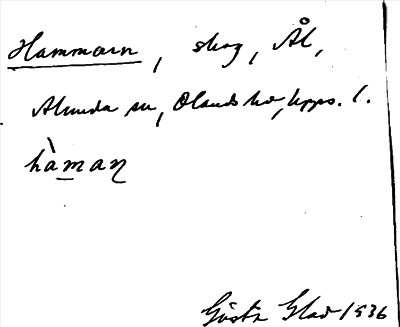 Hammarn, skog, Ål,
Almunda sn, Olands hd, Upps. l.
hàmaɳ
Gösta Glad 1936